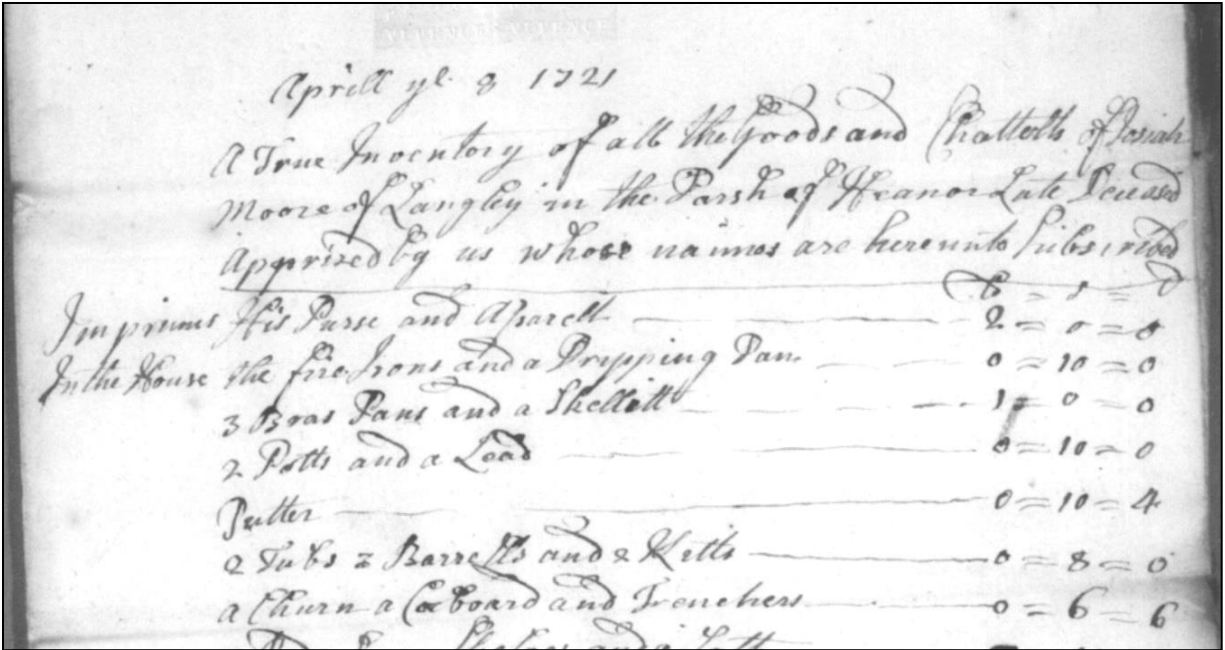 Aprill ye 8 1721
A True Inventory of all the Goods and Chattells of Josiah
Moore of Langley in the Parsh of Heanor Late Deceased
Apprized by us whose naimes are hereunto Subscribed
£ = s = d
Imprimis His Purse and Aparell 2 = 0 = 0
In the House the fire Irons and a Dripping Pan 0 = 10 = 0
3 Bras Pans and a Skellitt 1 = 0 = 0
2 Potts and a Lead 0 = 10 = 0
Putter 0 = 10 = 4
2 Tubs 2 Barrells and 2 Kitts 0 = 8 = 0
a Churn a Coboard and Trenchers 0 = 6 = 6
Shelves and a